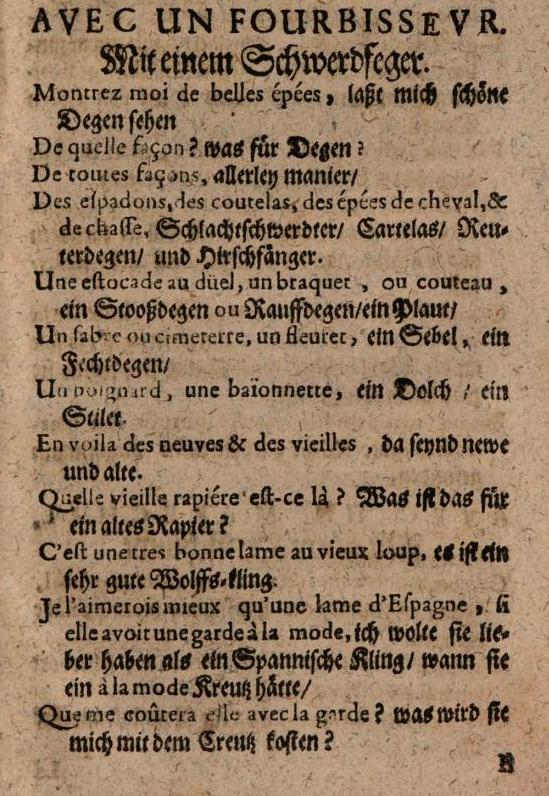 AVEC UN FOURBISSEVR.
Mit einem Schwerdfeger.
Montrez moi de belles épées, laßt mich schöne
Degen sehen
De quelle façon? was für Degen?
De toutes façons, allerley manier/
Des eſpadons, des coutelas, des épées de cheval, &
de chaſſe, Schlachtschwerdter/ Cartelas/ Reu-
terdegen/ und Hirschfänger.
Une eſtocade au düel, un braquet, ou couteau,
ein Stooßdegen ou Rauffdegen/ ein Plaut/
Un ſabre ou cimeterre, un fleuret, ein Sebel, ein
Fechtdegen/
Un poignard, une baïonnette, ein Dolch / ein
Stilet.
En voila des neuves & des vieilles, da seynd newe
und alte.
Quelle vieille rapiére eſt-ce là? Was ist das für
ein altes Rapier?
C'eſt une tres bonne lame au vieux loup, es ist ein
sehr gute Wolffs-kling.
Je l'aimerois mieux qu'une lame d'Eſpagne, ſi
elle avoit une garde à la mode, ich wolte sie lie-
ber haben als ein Spannische Kling/ wann sie
ein à la mode Kreutz hätte/
Que me coûtera elle avec la garde? was wird sie
mich mit dem Creutz kosten?